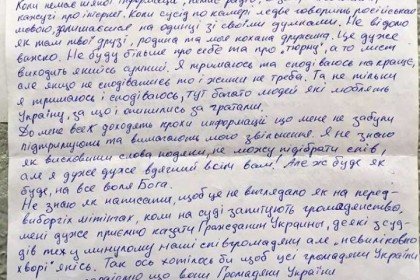 Коли немає ніякої інформації, немає радіо, а
кажучи про інтернет. Коли сусід по камері ледве говорить російською
мовою, залишаєшся на одинці зі своїми думками. Не відомо
як там твої друзі, родина та моя кохана дружина. Це дуже
важко. Не буду більше про себе та про "тюрму", а то лист
виходить якийсь сумний. Я тримаюсь та сподіваюсь на краще,
але якщо не сподіватись то і жити не треба. Та не тільки
я тримаюсь і сподіваюсь, тут багато людей які люблять
Україну, за що і опинились за гратами.
До мене все ж доходять крохи інформації що мене не забули
підтримують та вимагають мого звільнення. Я не знаю
як висловити слова подяки, не можу підібрати слів,
але я дуже дуже вдячний всім вам! Але ж буде як
буде, на все воля Бога.
Не знаю як написати, щоб це не виглядало як на перед-
виборчіх мітінгах, коли на суді запитують громадянство,
мені дуже приємно казати Гражданин Украины, деякі з суд-
дів теж у минулому наші співгромадяни але "невиліковно
хворі" якісь. Так ось хотілось би щоб усі громадяни України
що ваши Громадяни України